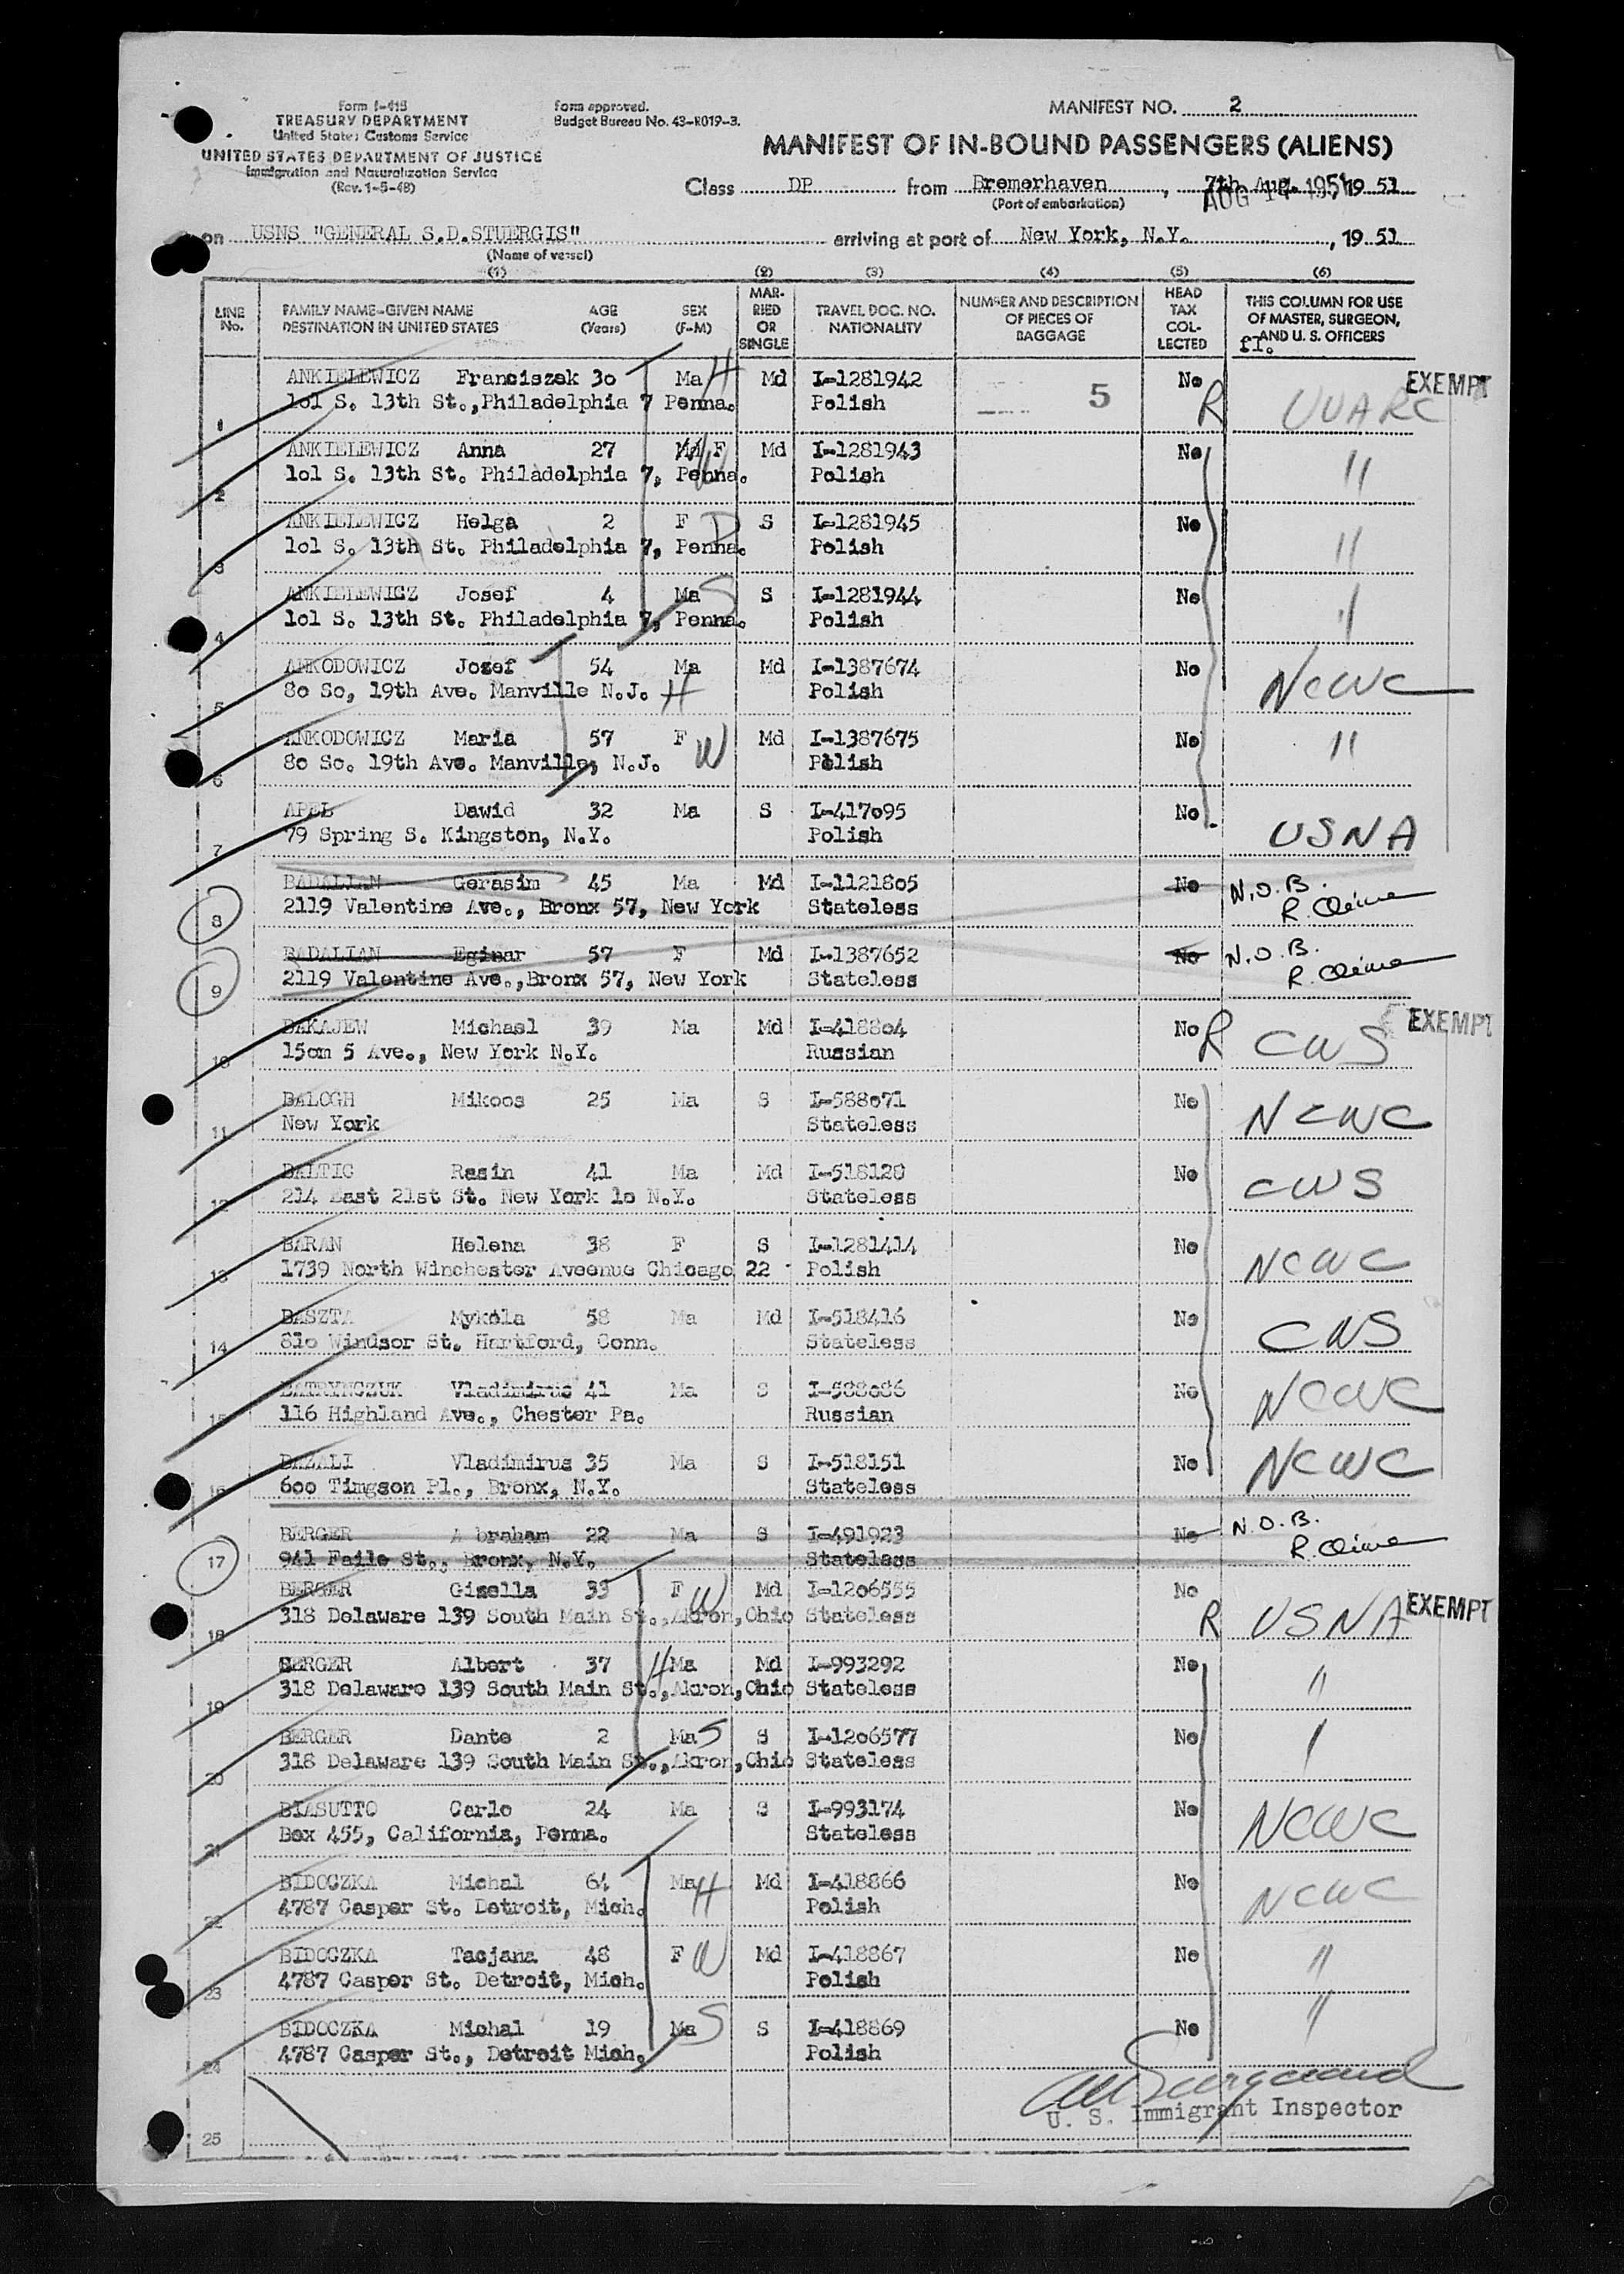 Form I-415
TREASURY DEPARTMENT
United States Customs Service
UNITED STATES DEPARTMENT OF JUSTICE
Immigration and Naturalization Service
(Rev. 1-5-48)
Form approved.
Budget Bureau No. 43-R019-3.
MANIFEST NO. 2
MANIFEST OF IN-BOUND PASSENGERS (ALIENS)
Class DP from Bremerhaven, 7th Aug. 1951
(Port of embarkation)
on USNS "GENERAL S.D.STUERGIS" arriving at port of New York, N.Y., 1951
(Name of vessel)
(1) (2) (3) (4) (5) (6)
LINE No. FAMILY NAME-GIVEN NAME DESTINATION IN UNITED STATES AGE (Years) SEX (F-M) MARRIED OR SINGLE TRAVEL DOC. NO. NATIONALITY NUMBER AND DESCRIPTION OF PIECES OF BAGGAGE HEAD TAX COLLECTED THIS COLUMN FOR USE OF MASTER, SURGEON, AND U. S. OFFICERS
1 ANKIELEWICZ Franciszek 3o Ma H Md I-1281942 5 No R UUARC EXEMPT
lol S. 13th St.,Philadelphia 7 Penna. Polish
2 ANKIELEWICZ Anna 27 F W Md I-1281943 No "
lol S. 13th St. Philadelphia 7, Penna. Polish
3 ANKIELEWICZ Helga 2 F D S I-1281945 No "
lol S. 13th St. Philadelphia 7, Penna. Polish
4 ANKIELEWICZ Josef 4 Ma S S I-1281944 No "
lol S. 13th St. Philadelphia 7, Penna. Polish
5 ANKODOWICZ Jozef 54 Ma H Md I-1387674 No NCWC
8o So, 19th Ave. Manville N.J. Polish
6 ANKODOWICZ Maria 57 F W Md I-1387675 No "
8o So. 19th Ave. Manville, N.J. Polish
7 APEL Dawid 32 Ma S I-417o95 No USNA
79 Spring S. Kingston, N.Y. Polish
8 BADALIAN Gerasim 45 Ma Md I-11218o5 No N.O.B.
2119 Valentine Ave., Bronx 57, New York Stateless
9 BADALIAN Eginar 57 F Md I-1387652 No N.O.B.
2119 Valentine Ave.,Bronx 57, New York Stateless
10 BAKAJEW Michael 39 Ma Md I-4188o4 No R CWS EXEMPT
15om 5 Ave., New York N.Y. Russian
11 BALOGH Mikoos 25 Ma S I-588o71 No NCWC
New York Stateless
12 BALTIC Rasin 41 Ma Md I-518120 No CWS
214 East 21st St. New York lo N.Y. Stateless
13 BARAN Helena 38 F S I-1281414 No NCWC
1739 North Winchester Aveenue Chicago 22 Polish
14 BASZTA Mykola 58 Ma Md I-518416 No CWS
81o Windsor St. Hartford, Conn. Stateless
15 BATRYNCZUK Vladimirus 41 Ma S I-588o86 No NCWC
116 Highland Ave., Chester Pa. Russian
16 BAZALI Vladimirus 35 Ma S I-518151 No NCWC
6oo Timgson Pl., Bronx, N.Y. Stateless
17 BERGER A braham 22 Ma S I-491923 No N.O.B.
941 Faile St., Bronx, N.Y. Stateless
18 BERGER Gisella 33 F W Md I-12o6555 No R USNA EXEMPT
318 Delaware 139 South Main St.,Akron,Ohio Stateless
19 BERGER Albert 37 H Ma Md I-993292 No "
318 Delaware 139 South Main St.,Akron,Ohio Stateless
20 BERGER Dante 2 Ma S S I-12o6577 No "
318 Delaware 139 South Main St.,Akron,Ohio Stateless
21 BIASUTTO Carlo 24 Ma S I-993174 No NCWC
Box 455, California, Penna. Stateless
22 BIDOCZKA Michal 64 Ma H Md I-418866 No NCWC
4787 Casper St. Detroit, Mich. Polish
23 BIDOCZKA Tacjana 48 F W Md I-418867 No "
4787 Casper St. Detroit, Mich. Polish
24 BIDOCZKA Michal 19 Ma S S I-418869 No "
4787 Casper St., Detroit Mich. Polish
U. S. Immigrant Inspector
25